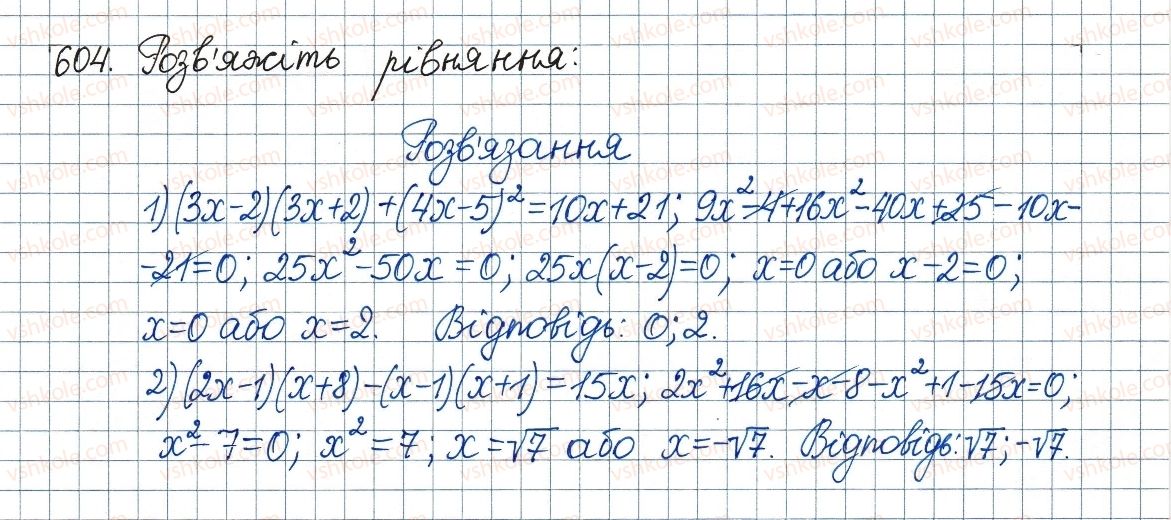 604. Розв'яжіть рівняння:
Розв'язання
1) (3x-2)(3x+2)+(4x-5)²=10x+21; 9x²-4+16x²-40x+25-10x-
-21=0; 25x²-50x=0; 25x(x-2)=0; x=0 або x-2=0;
x=0 або x=2. Відповідь: 0; 2.
2) (2x-1)(x+8)-(x-1)(x+1)=15x; 2x²+16x-x-8-x²+1-15x=0;
x²-7=0; x²=7; x=√7 або x=-√7. Відповідь: √7; -√7.